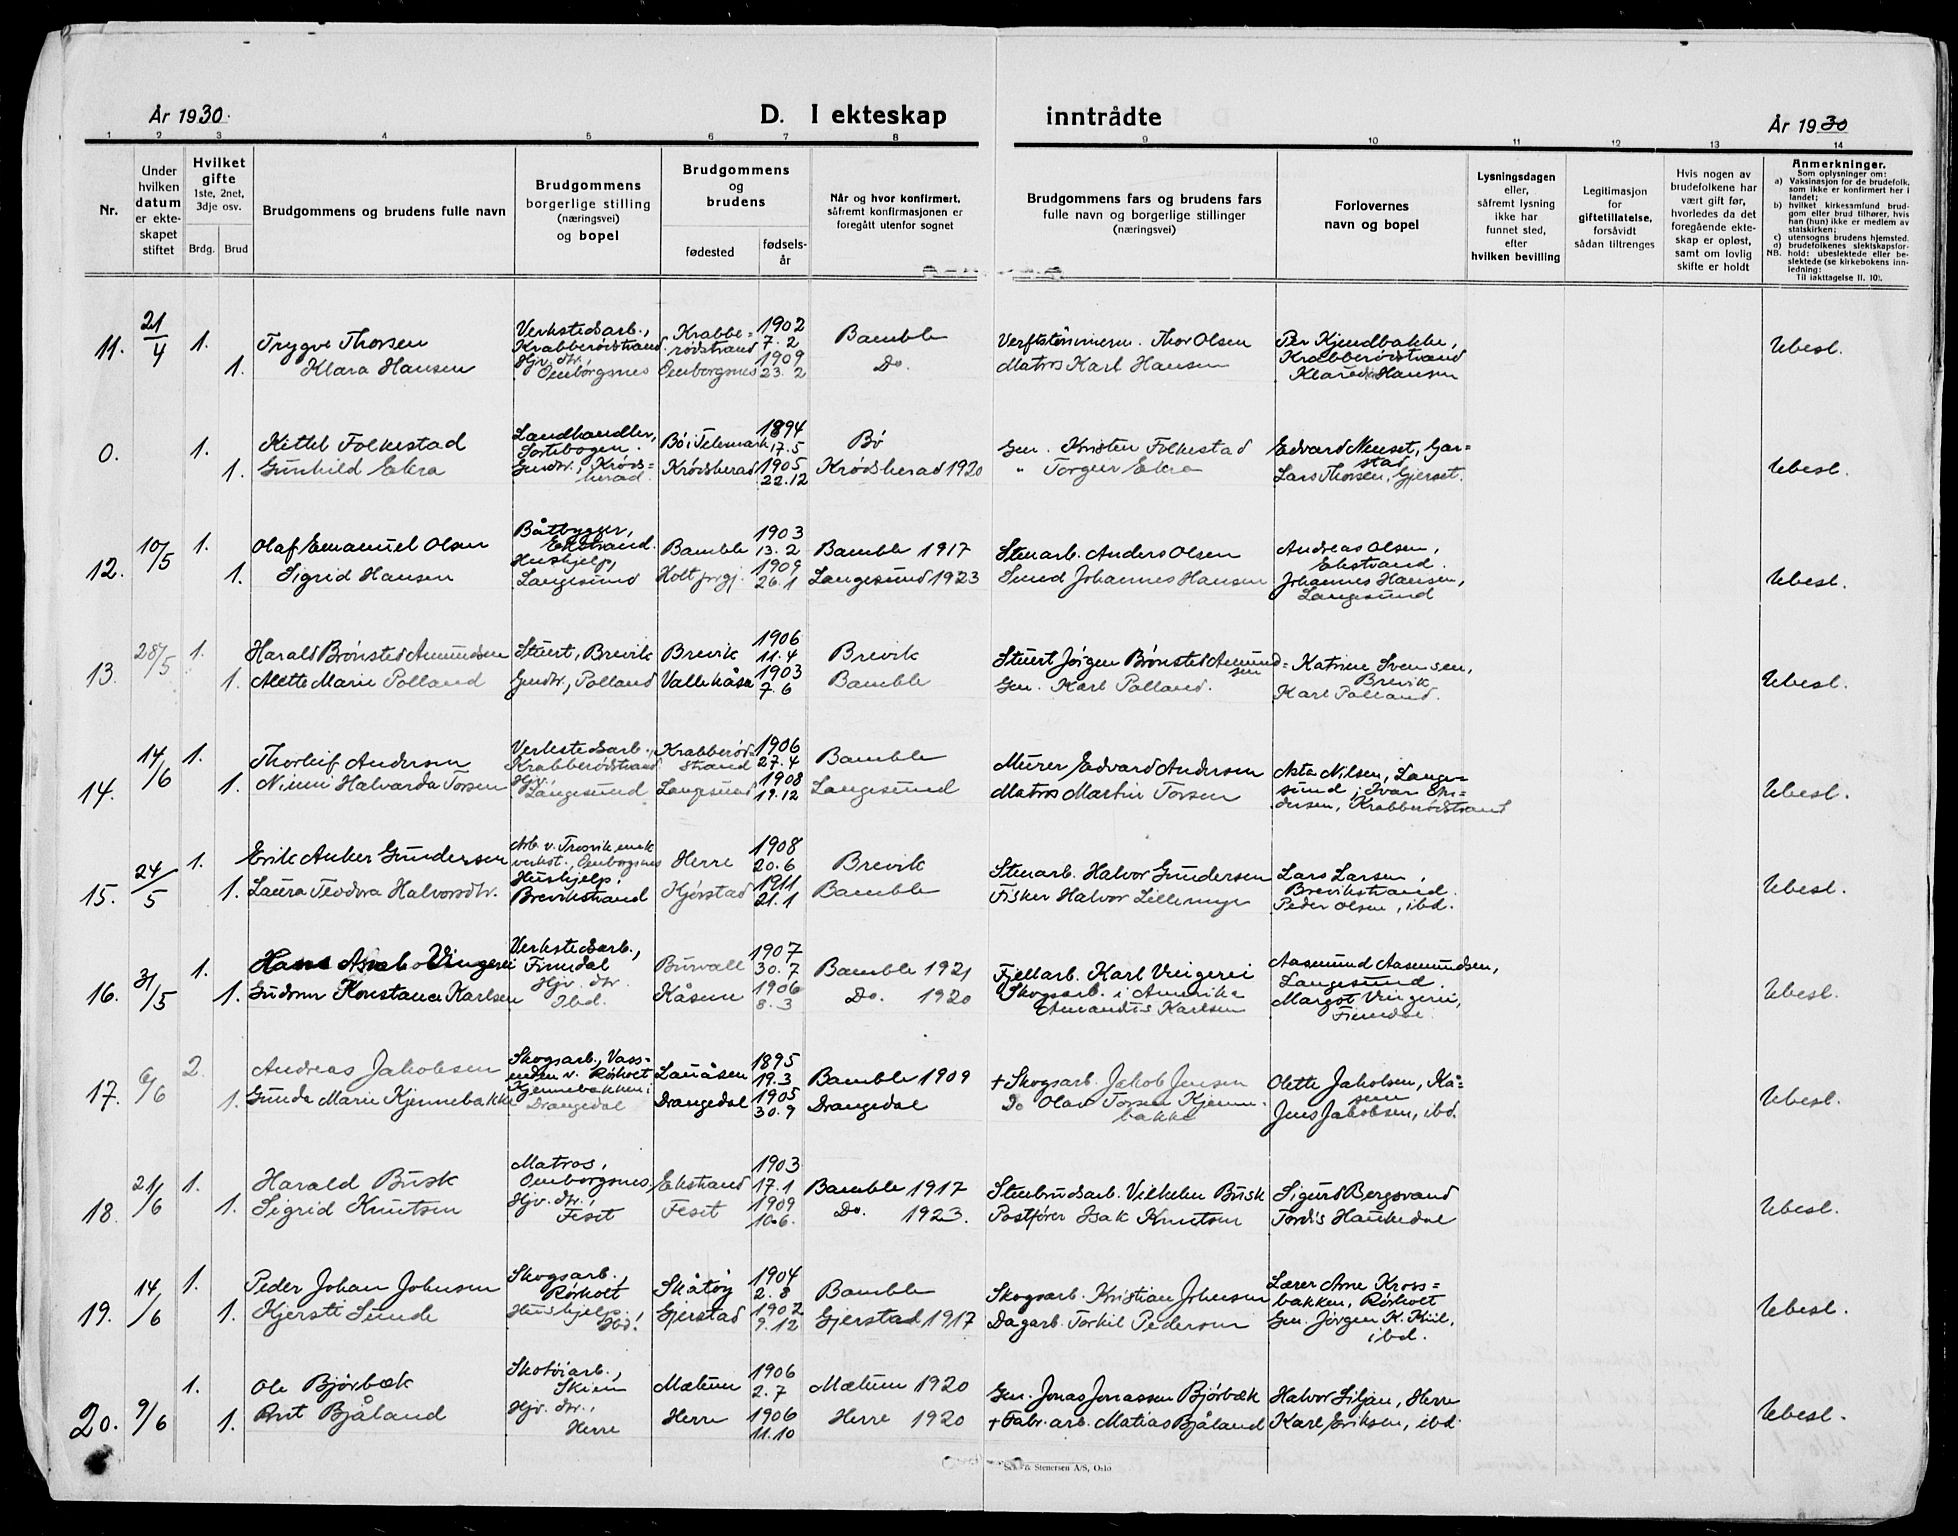 År 1930.
D. I ekteskap inntrådte
År 1930
1 2 3 4 5 6 7 8 9 10 11 12 13 14
Nr.
Under hvilken datum er ekteskapet stiftet
Hvilket gifte 1ste, 2net, 3dje osv.
Brdg. Brud
Brudgommens og brudens fulle navn
Brudgommens borgerlige stilling (næringsvei) og bopel
Brudgommens og brudens
fødested fødselsår
Når og hvor konfirmert, såfremt konfirmasjonen er foregått utenfor sognet
Brudgommens fars og brudens fars fulle navn og borgerlige stillinger (næringsvei)
Forlovernes navn og bopel
Lysningsdagen eller, såfremt lysning ikke har funnet sted, efter hvilken bevilling
Legitimasjon for giftetillatelse, forsåvidt sådan tiltrenges
Hvis nogen av brudefolkene har vært gift før, hvorledes da det foregående ekteskap er opløst, samt om lovlig skifte er holdt
Anmerkninger.
Som oplysninger om:
a) Vaksinasjon for de brudefolk, som ikke er konfirmert her i landet;
b) hvilket kirkesamfund brudgom eller brud tilhører, hvis han (hun) ikke er medlem av statskirken;
c) utensogns brudens hjemsted.
d) brudefolkenes slektskapsforhold: ubeslektede eller beslektede (se kirkebokens innledning:
NB.
Til iakttagelse II. 10).
11. 21/4 1. Trygve Thorsen Verkstedsarb., Krabberødstrand Krabberødstrand 1902 7.2 Bamble Verftstømmerm. Thor Olsen Per Kjendbakke, Krabberødstrand Ubesl.
1. Klara Hansen Hjv. dtr. Ønborgsnes Ønborgsnes 1909 23.2 Do. Matros Karl Hansen Hansen
0. 1. Kittel Folkestad Landhandler, Bø i Telemark 1894 17.5 Bø Gm. Kristen Folkestad Edvard Neuset, Garstad Ubesl.
1. Gunhild Ekra Gmdtr., Krødsherad Krødsherad 1905 22.12 Krødsherad 1920 " Torger Ekra Lars Thorsen, Gjerset.
12. 10/5 1. Olaf Emanuel Olsen Båtbygger, Ekstrand. Bamble 1903 13.2 Bamble 1917 Stenarb. Anders Olsen Andreas Olsen, Ekstrand. Ubesl.
1. Sigrid Hansen Hushjelp, Langesund Holt prgj. 1909 26.1 Langesund 1923 Smed Johannes Hansen Johannes Hansen, Langesund
13. 28/5 1. Harald Brønsted Amundsen Stuert, Brevik Brevik 1906 11.4 Brevik Stuert Jørgen Brønsted Amundsen Katrine Svensen, Brevik Ubesl.
1. Alette Marie Polland Gmdtr., Polland Vallekåsa 1903 7.6 Bamble Gm. Karl Polland. Karl Polland.
14. 14/6 1. Thorleif Andersen Verkstedsarb. Krabberødstrand Krabberødstrand 1906 27.4 Bamble Murer Edvard Andersen Asta Nilsen, Langesund, Ivar Andersen, Krabberødstrand Ubesl.
1. Halvarda Torsen Hjv., Langesund Langesund 1908 19.12 Langesund Matros Martin Torsen
15. 24/5 1. Erik Anker Gundersen Arb. v. Trosvik mek verkst., Ønborgsnes Herre 1908 20.6 Brevik Stenarb. Halvor Gundersen Lars Larsen, Brevikstrand. Ubesl.
1. Laura Teodora Halvorsdtr. Hushjelp, Brevikstrand Hjørstad 1911 21.1 Bamble Fisker Halvor Lillemyr Peder Olsen, ibd.
16. 31/5 1. Hans Vingerei Verkstedsarb., Findal 1907 30.7 Bamble 1921 Fjellarb. Karl Vingerei Aasmund Aasmundsen, Langesund. Ubesl.
1. Gudrun Konstanse Karlsen Hjv. dtr. Ibd. Kåsen 1906 8.3 Do. 1920 Skogsarb. i Amerika Amandus Karlsen Margot Vingerei,
17. 6/6 2. Andreas Jakobsen Skogsarb., Vassenden v. Rørholt Lauåsen 1895 19.3 Bamble 1909 + Skogsarb. Jakob Jensen Olette Jakobsen, Kåsen Ubesl.
1. Gunda Marie Kjennebakke Kjennebakken i Drangedal Drangedal 1905 30.9 Drangedal Do Olav Torsen Kjennebakke Jens Jakobsen, ibd.
18. 21/6 1. Harald Busk Matros, Ønborgsnes, Ekstrand 1903 17.1 Bamble 1917 Stenbrudsarb. Vilhelm Busk Sigurd Bergsvand Ubesl.
1. Sigrid Knutsen Hjv. dtr. Feset Feset 1909 10.6. Do. 1923. Postfører Isak Knutsen Tordis Haukedal
19. 14/6 1. Peder Johan Johnsen Skogsarb., Rørholt Skåtøy 1904 2.8 Bamble Skogsarb. Kristian Johnsen Lærer Arne Krossbakken, Rørholt Ubesl.
1. Kjersti Sunde Hushjelp. Ibd. Gjerstad 1902 9.12 Gjerstad 1917 Dagarb. Torkil Pedersen Gm. Jørgen K. Kiil, ibd.
20. 9/6 1. Ole Bjørbæk Skotøiarb., Skien Mælum 1906 2.7 Mælum 1920 Gm. Jonas Jonassen Bjørbæk Halvor Siljan, Herre Ubesl.
1. Brit Bjåland Hjv. dtr., Herre Herre 1906 11.10 Herre 1920 + Fabr. arb. Matias Bjåland Karl Eriksen, ibd.
Stenersen A/S, Oslo